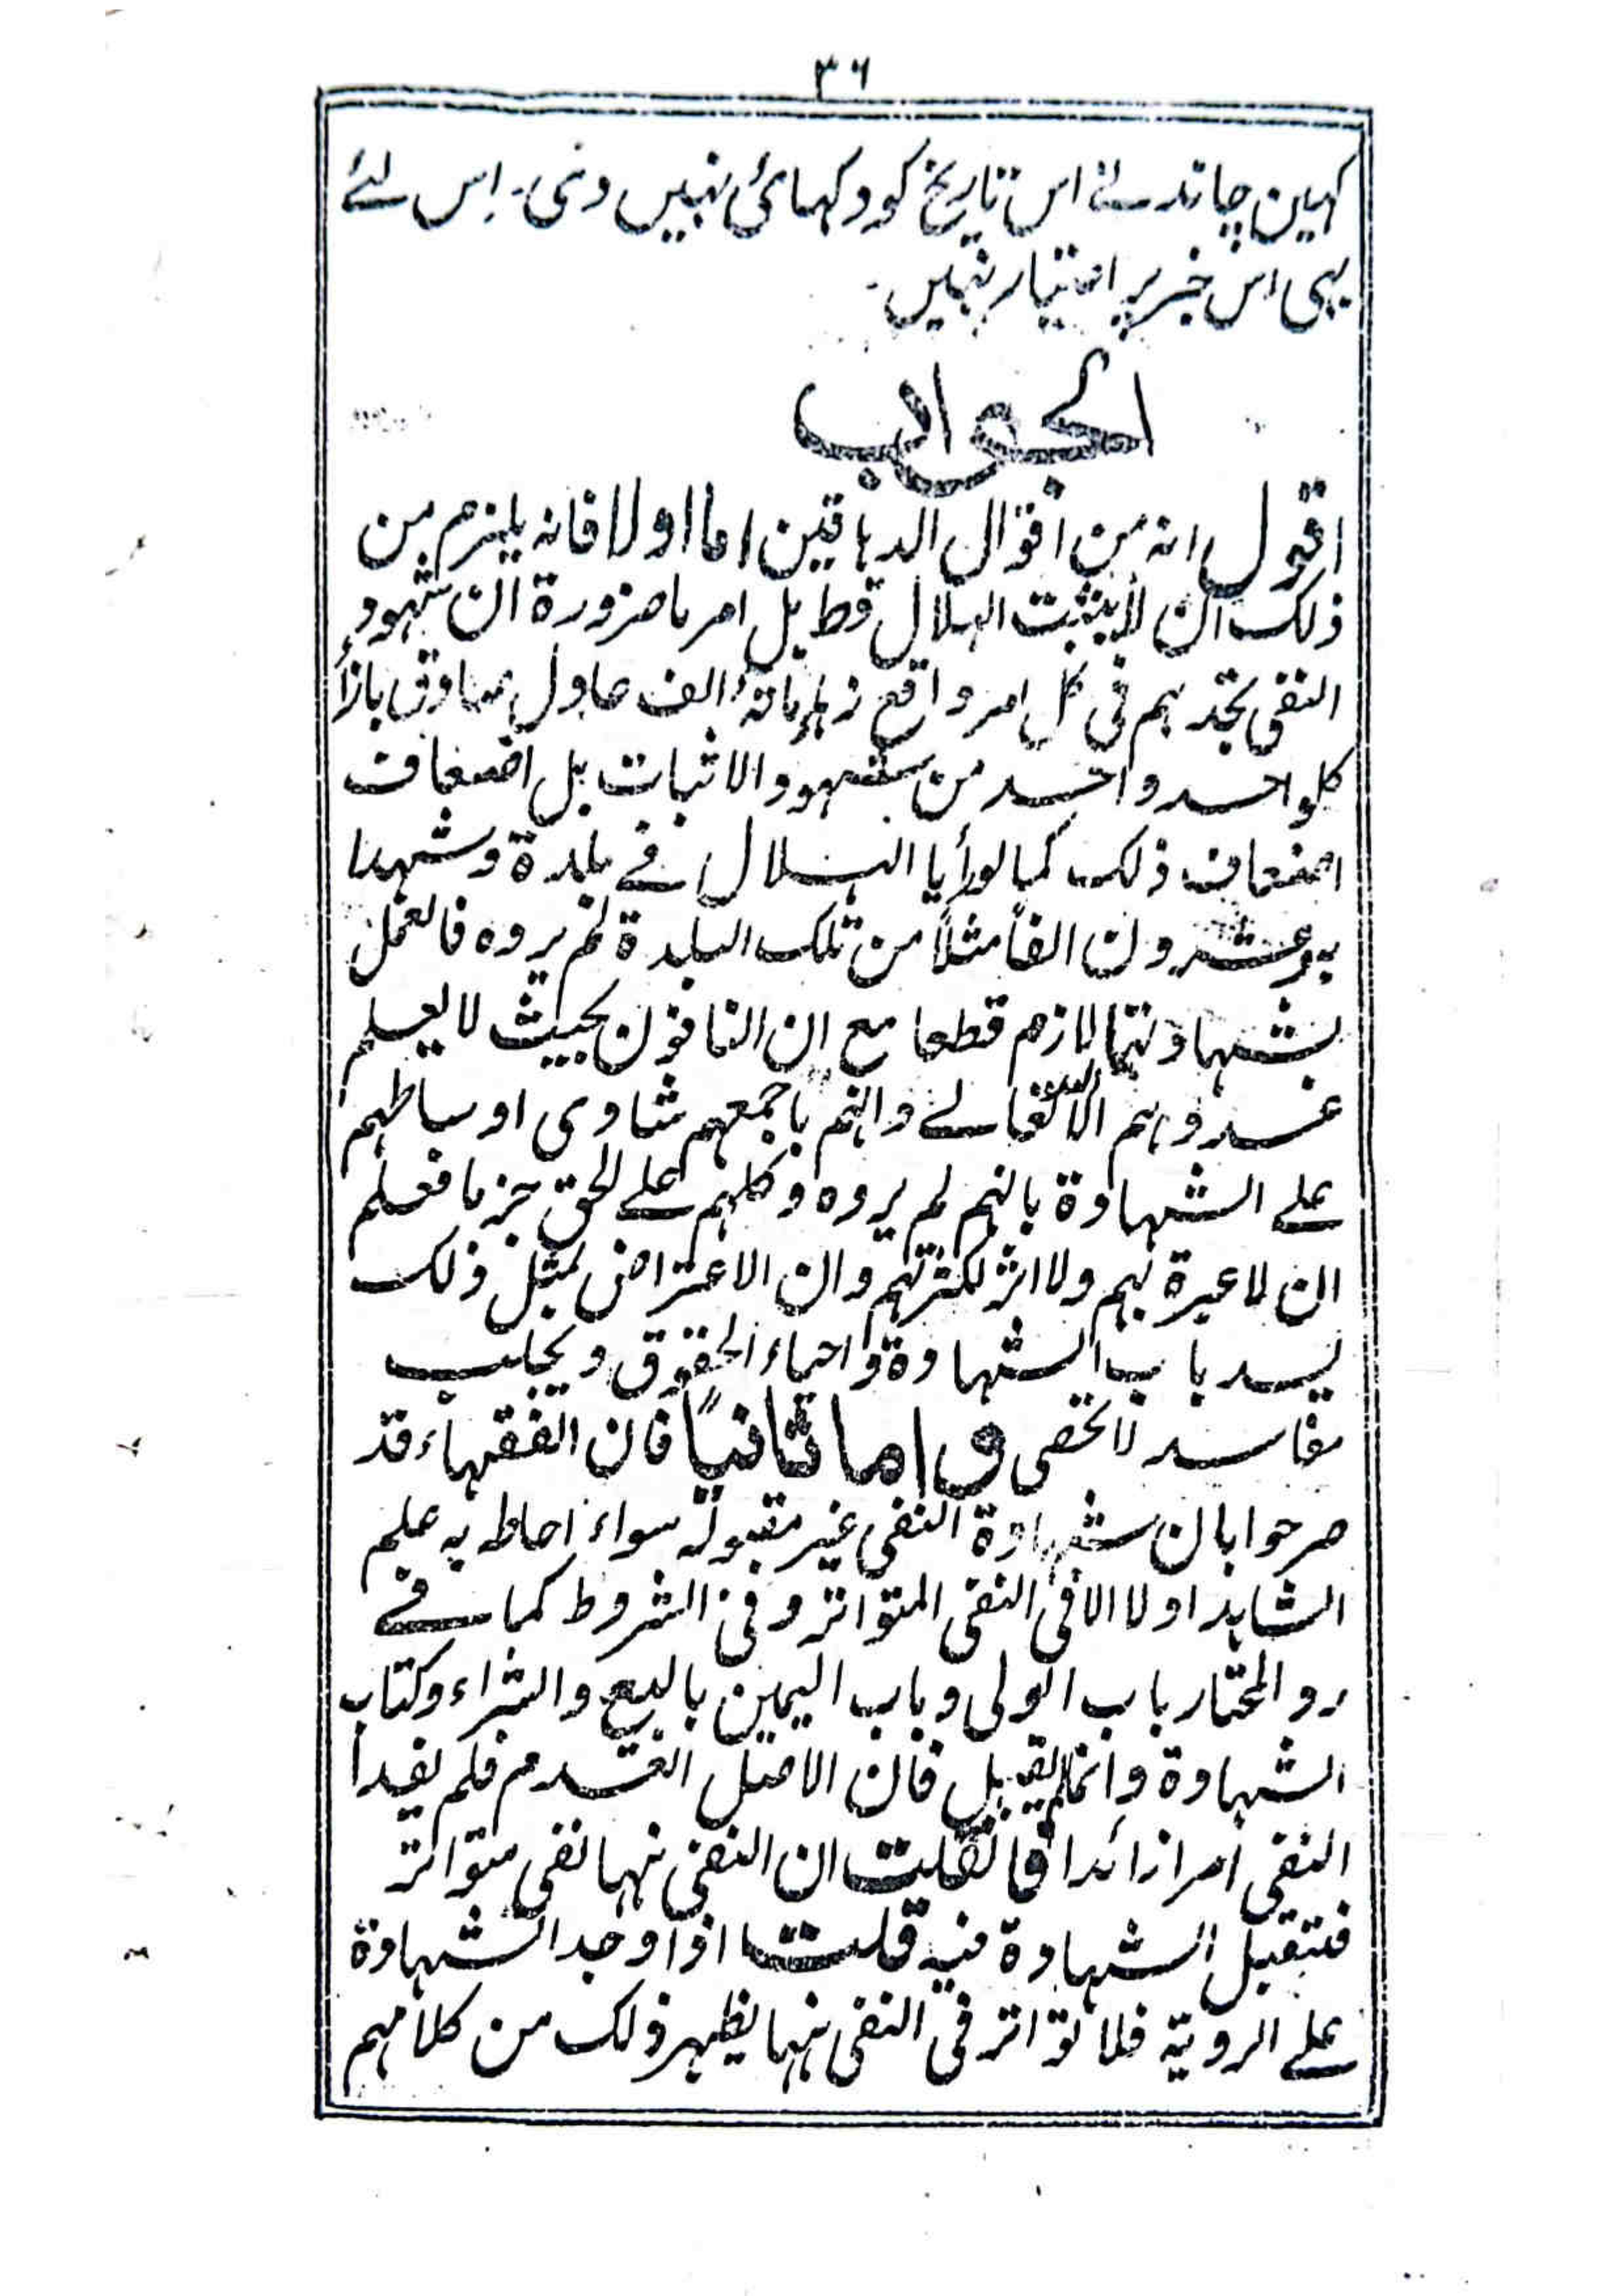 ۳۶
کہین چاند نے اس تاریخ کو دکہائی نہیں دی۔ اِس لئے
بہی اس خبر پر اعتبار نہیں۔
الجواب
اقول انہ من اقوال الدہاقین اما اولا فانہ یلزم من
ذلک ان لا یثبت الہلال قط بل امر ما ضرورة ان شہود
النفی تجدہم فی کل امر واقع زہاء مائة الف عادل صادق بازاء
کلواحد واحد من شہود الاثبات بل اضعاف
اضعاف ذلک کما لو رأیا الہلال فے بلدة وشہدا
بہ وعشرون الفاً مثلاً من تلک البلدة لم یروہ فالعمل
بشہادتہما لازم قطعا مع ان النافون بحیث لا یعلم
عددہم الا اللہ تعالے وانہم باجمعہم متساوی اوساطہم
علے الشہادة بانہم لم یروہ وکلہم علے الحق جزما فعلم
ان لا عبرة بہم ولا اثر لکثرتہم وان الاعتراض بمثل ذلک
یسد باب الشہادة واحیاء الحقوق ویجلب
مفاسد لا تخفی واما ثانیاً فان الفقہاء قد
صرحوا بان شہادة النفی غیر مقبولة سواء احاط بہ علم
الشاہد اولا الا فی النفی المتواتر وفی الشروط کما فے
رد المحتار باب الولی وباب الیمین بالبیع والشراء وکتاب
الشہادة وانما لم یقبل فان الاصل العدم فلم یفید
النفی امرا زائدا فان قلت ان النفی نہہنا نفی متواتر
فتقبل الشہادة فیہ قلت اذا وجد الشہادة
علے الرویة فلا تواتر فی النفی نہہنا یظہر ذلک من کلامہم